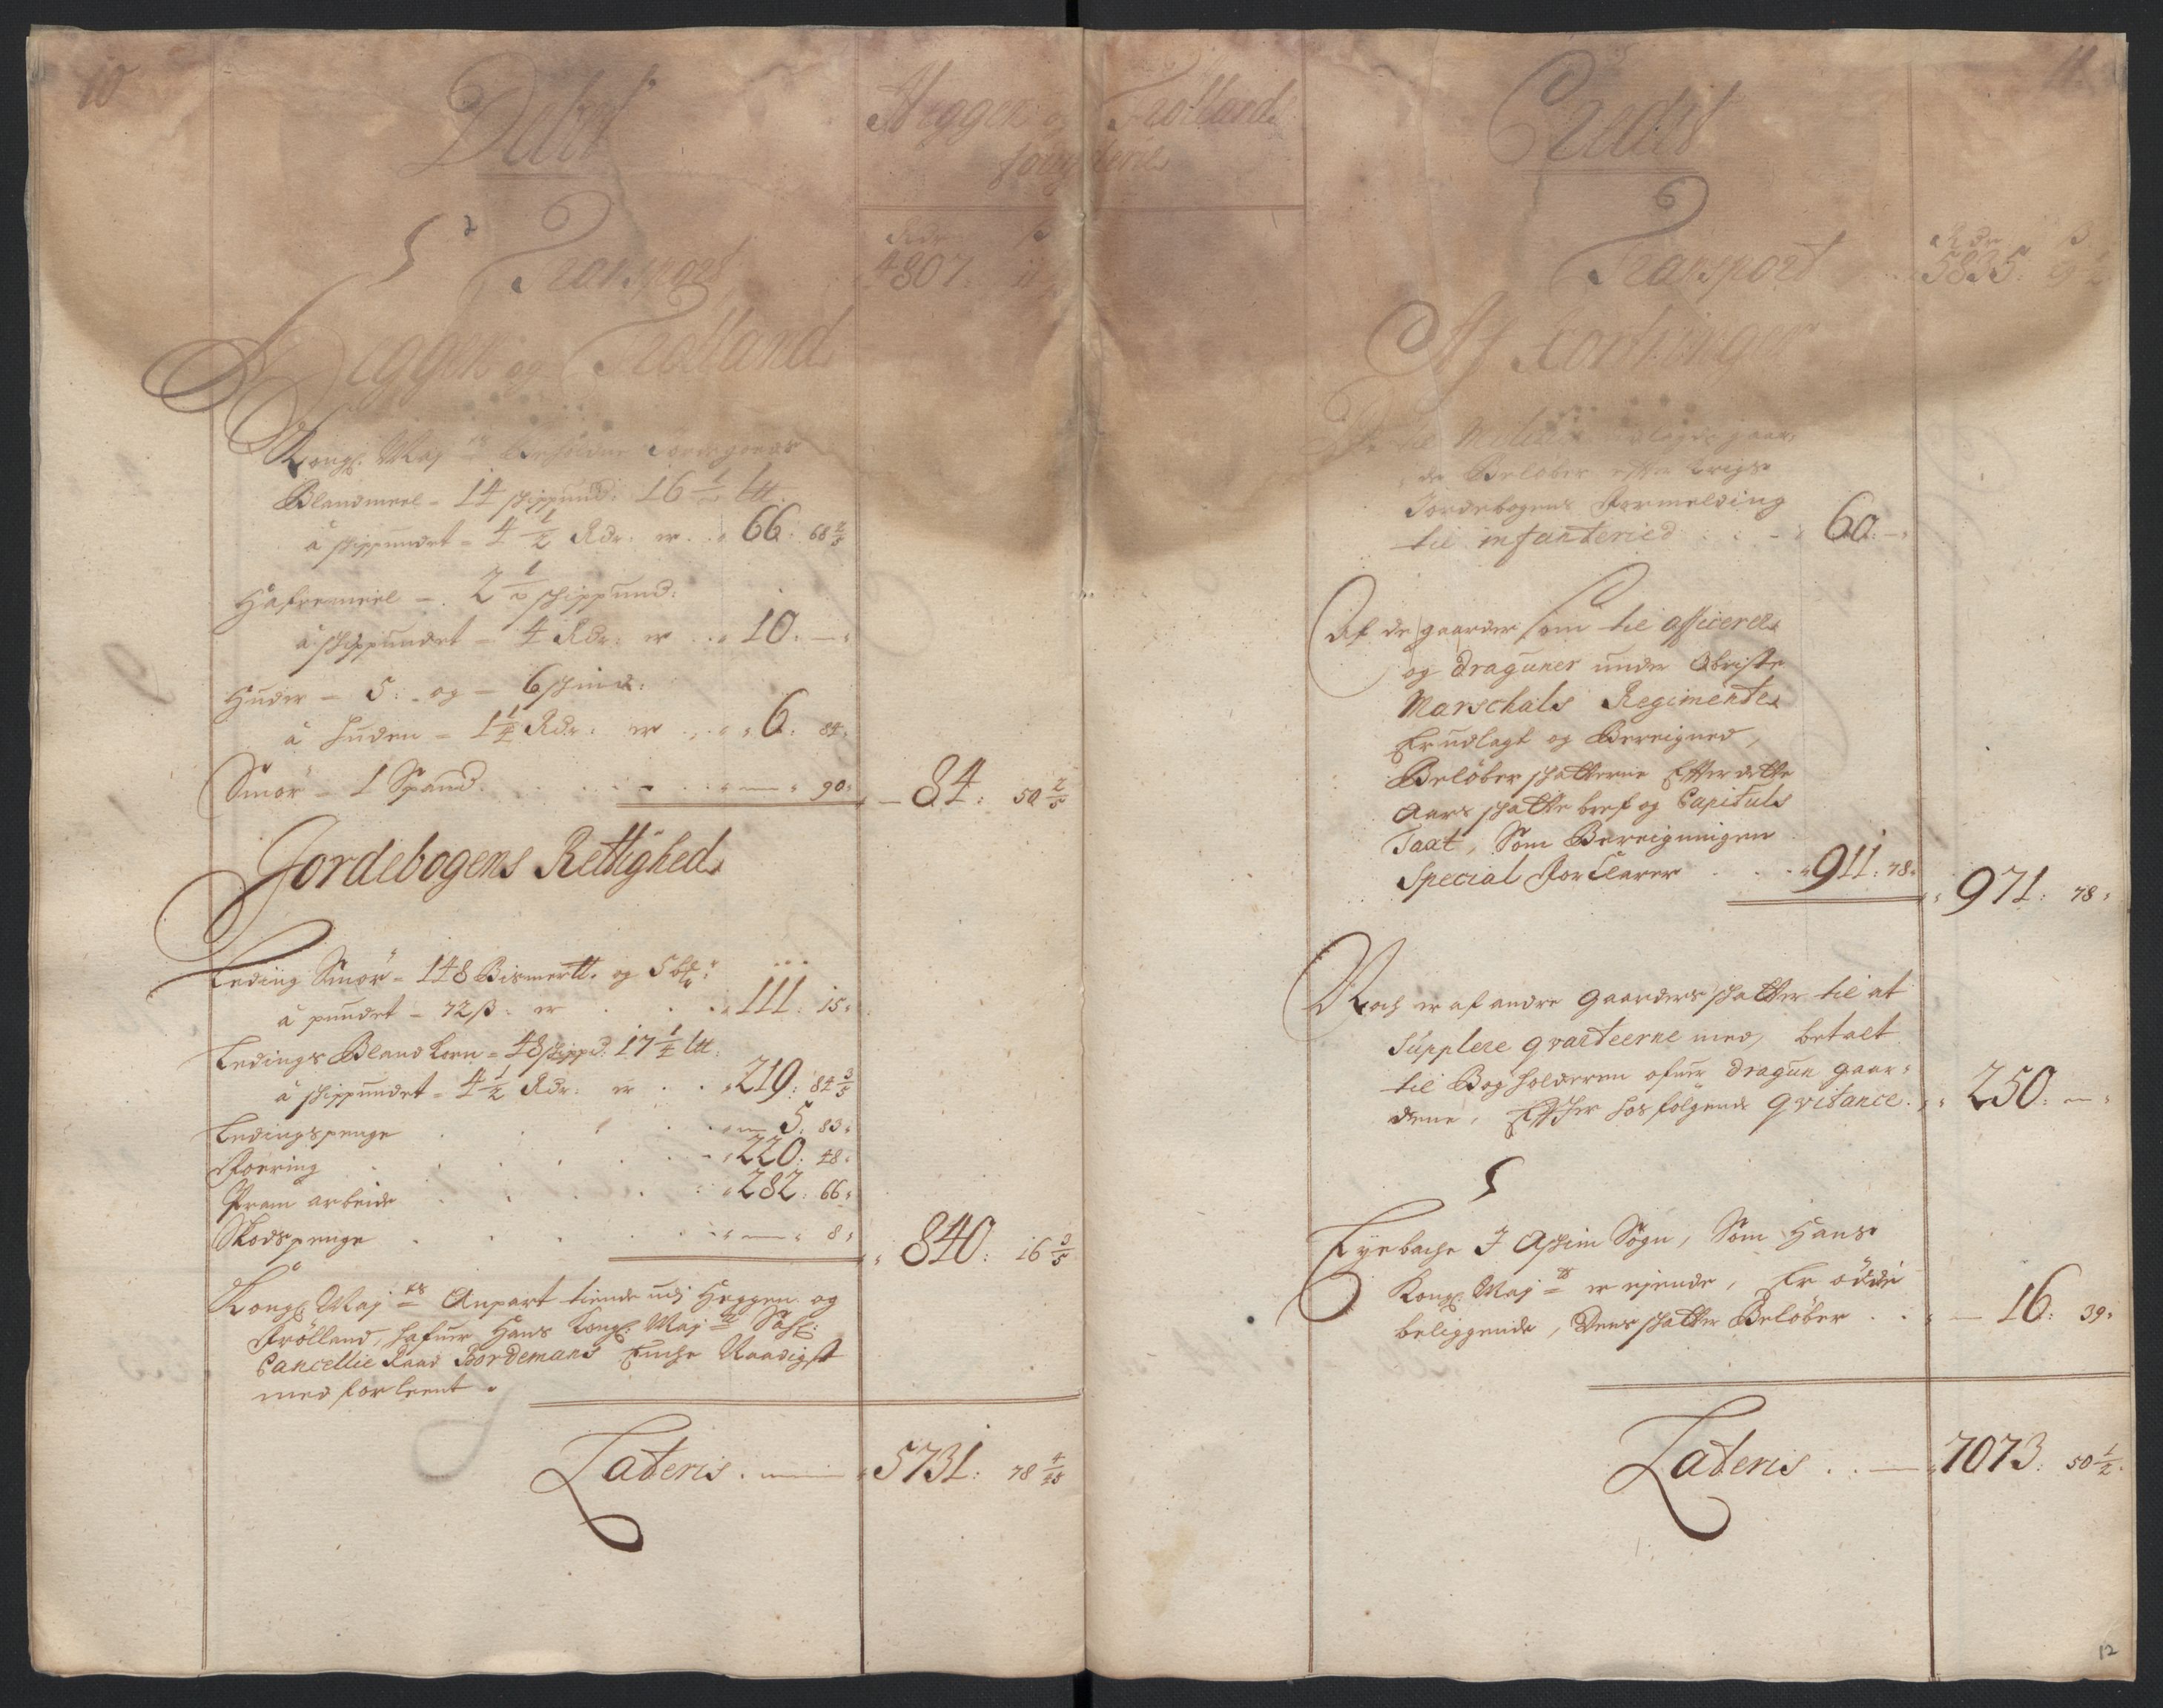 10
Debet
Heggen og Frølland
fougderie
5
Transport
Rdr ß
4807: 11
Heggen og Frølland
Kongl: Maj ts Beholdne Jordegoeds
Blandmeel - 14 skippund: 16 1/2 ltt.
á skippundet = 4 1/2 Rdr: er . . 66: 68 2/5
Hafremeel - 2 1/2 skippund:
á skippundet - 4 Rdr: er . . 10: —
Huder - 5: og - 6 skind:
á Huden - 1 1/4 Rdr: er . . 6: 84:
Smör - 1 Spand . . . — 90:
84: 50 2/5
Jordebogens Rettighed
Leding Smör = 148 Bismertt. og 5 btt:
á pundet - 72 ß: er . . 111: 15:
Ledings Bland Korn = 48 skippd: 17 1/4 ltt.
á skippundet = 4 1/2 Rdr: er . . 219: 84 3/5
Ledingspenge . . . — 5: 83:
Foering . . . 220: 48:
Pram arbeide . . . 282: 66:
Skodspenge . . . — 8:
840: 16 3/5
Kongl: Maj ts Anpart tiende udj Heggen og
Frølland, hafuer Hans Kongl: Maj tt Sahl:
Cancellie Raad Bordemans Enche Naadigst
med forleent .
Lateris . — 5731: 78
11
Credit
Transport
Rdr ß
5835: 19 1/2
Afkortninger
De til Militien udlagde gaar,
de Beløber efter Krigs
Jordebogens Formelding
til infanteried . . 60: —
Af de gaarder som til officerer
og draguner under Obriste
Marschals Regimente
Er udlagt og Bereigned,
Beløber skatterne Efter dette
Aars skatte bref og Capituls
Taxt, Som Bereigningen
Special Forklarer . . . 911: 78:
971: 78:
Noch er af andre gaarders skatter til at
Supplere qvarteerne med, betalt
til Bogholderen ofuer dragun gaar=
dene, Efter hosfølgende qvitance . . 250: —
5
Eyebache I Askim Sogn, Som Hans
Kongl: Maj tt er ejende, Er ødde
beliggende, Dens skatter Beløber . . — 16: 39:
Lateris . . — 7073: 50 1/2
12